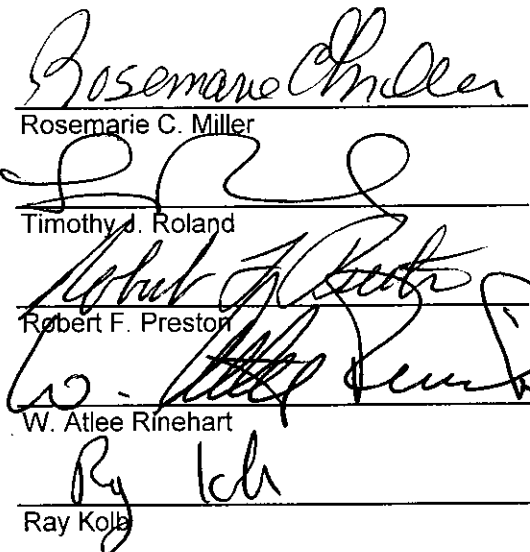 Rosemarie C Miller
Rosemarie C. Miller
Timothy J. Roland
Robert F. Preston
Robert F. Preston
W. Atlee Rinehart
W. Atlee Rinehart
Ray Kolb
Ray Kolb